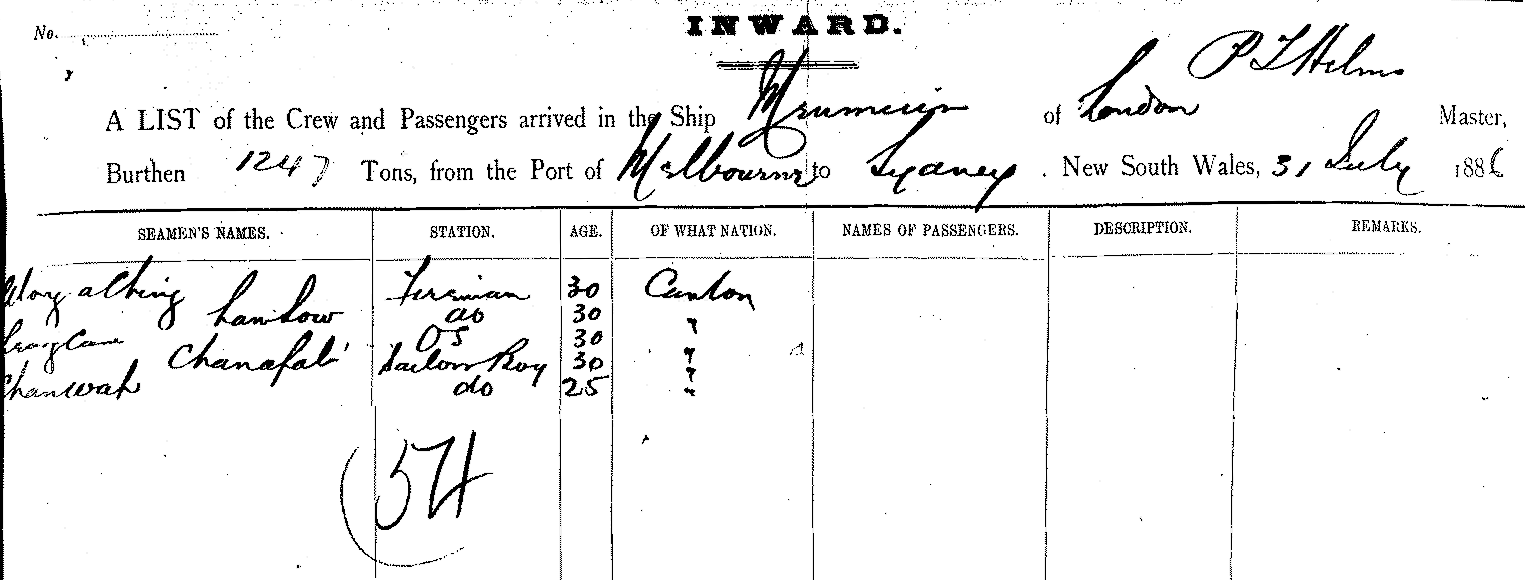 No.
INWARD.
P T Helms
A LIST of the Crew and Passengers arrived in the Ship of London Master,
Burthen 1247 Tons, from the Port of Melbourne to Sydney. New South Wales, 31 July 1886
SEAMEN'S NAMES. STATION. AGE. OF WHAT NATION. NAMES OF PASSENGERS. DESCRIPTION. REMARKS.
Fireman 30 Canton
do 30 "
OS 30 "
30 "
Chanwah do 25 "
(54